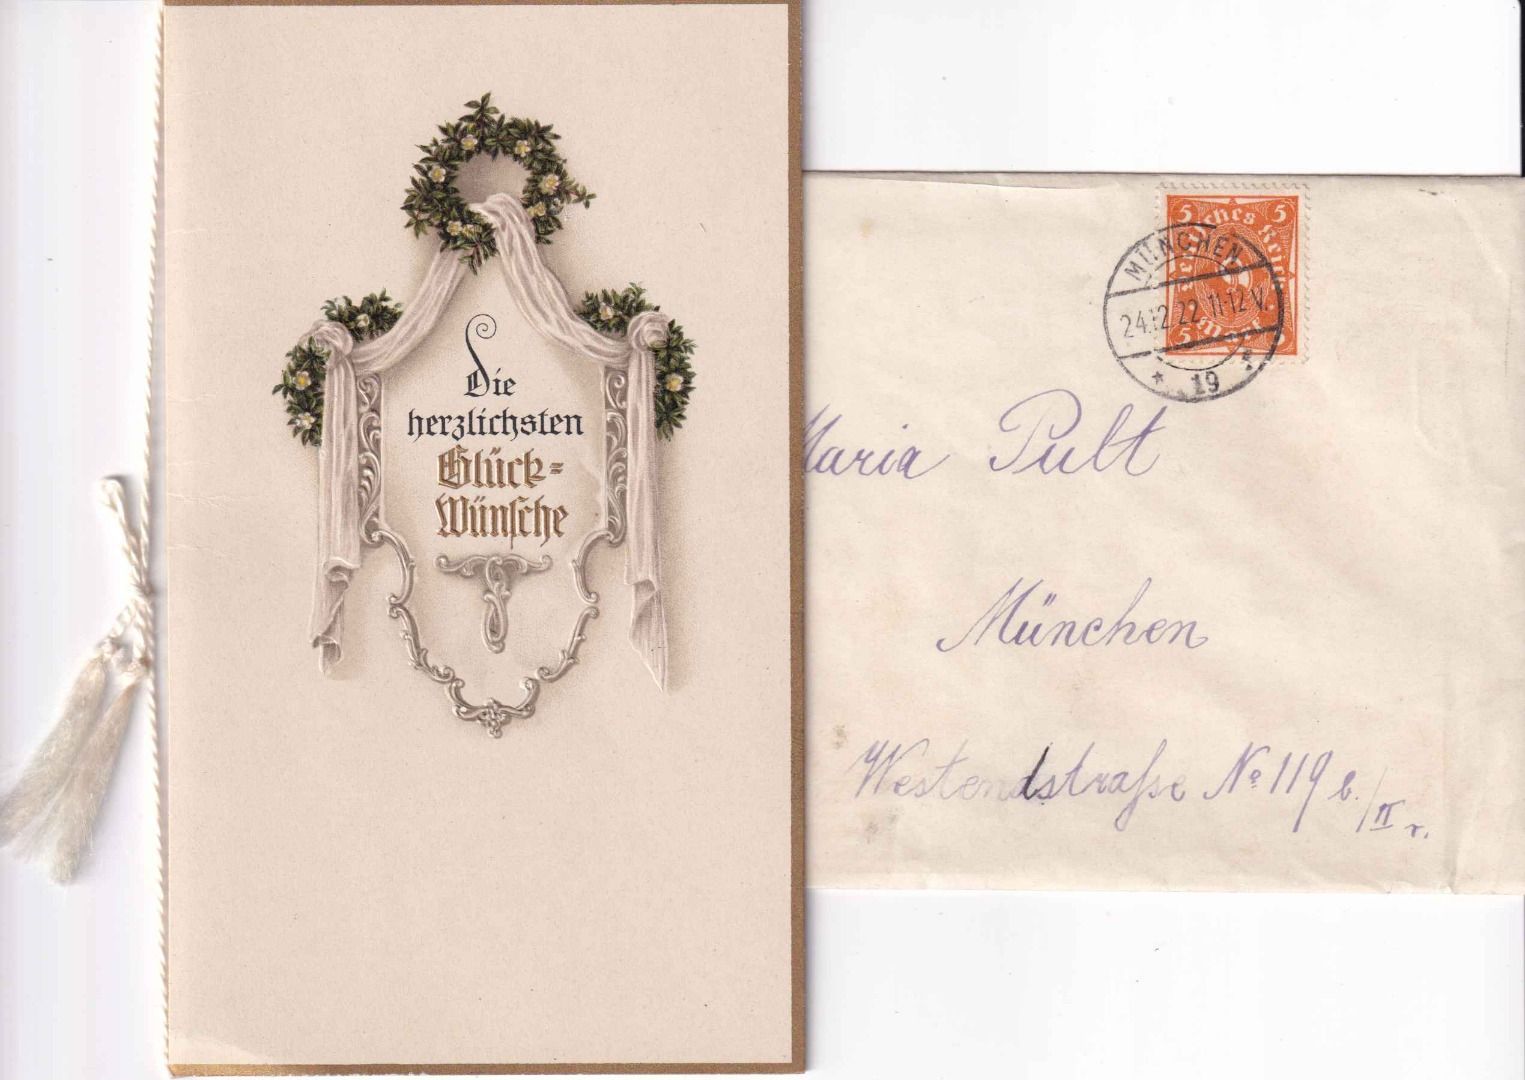 Die
herzlichsten
Glück=
Wünsche
5 Deutsches Reich 5
5 Mark 5
MÜNCHEN
24.12.22 11-12 V.
* 19 *
Maria Pult
München
Westendstraße No 119 b./II r.